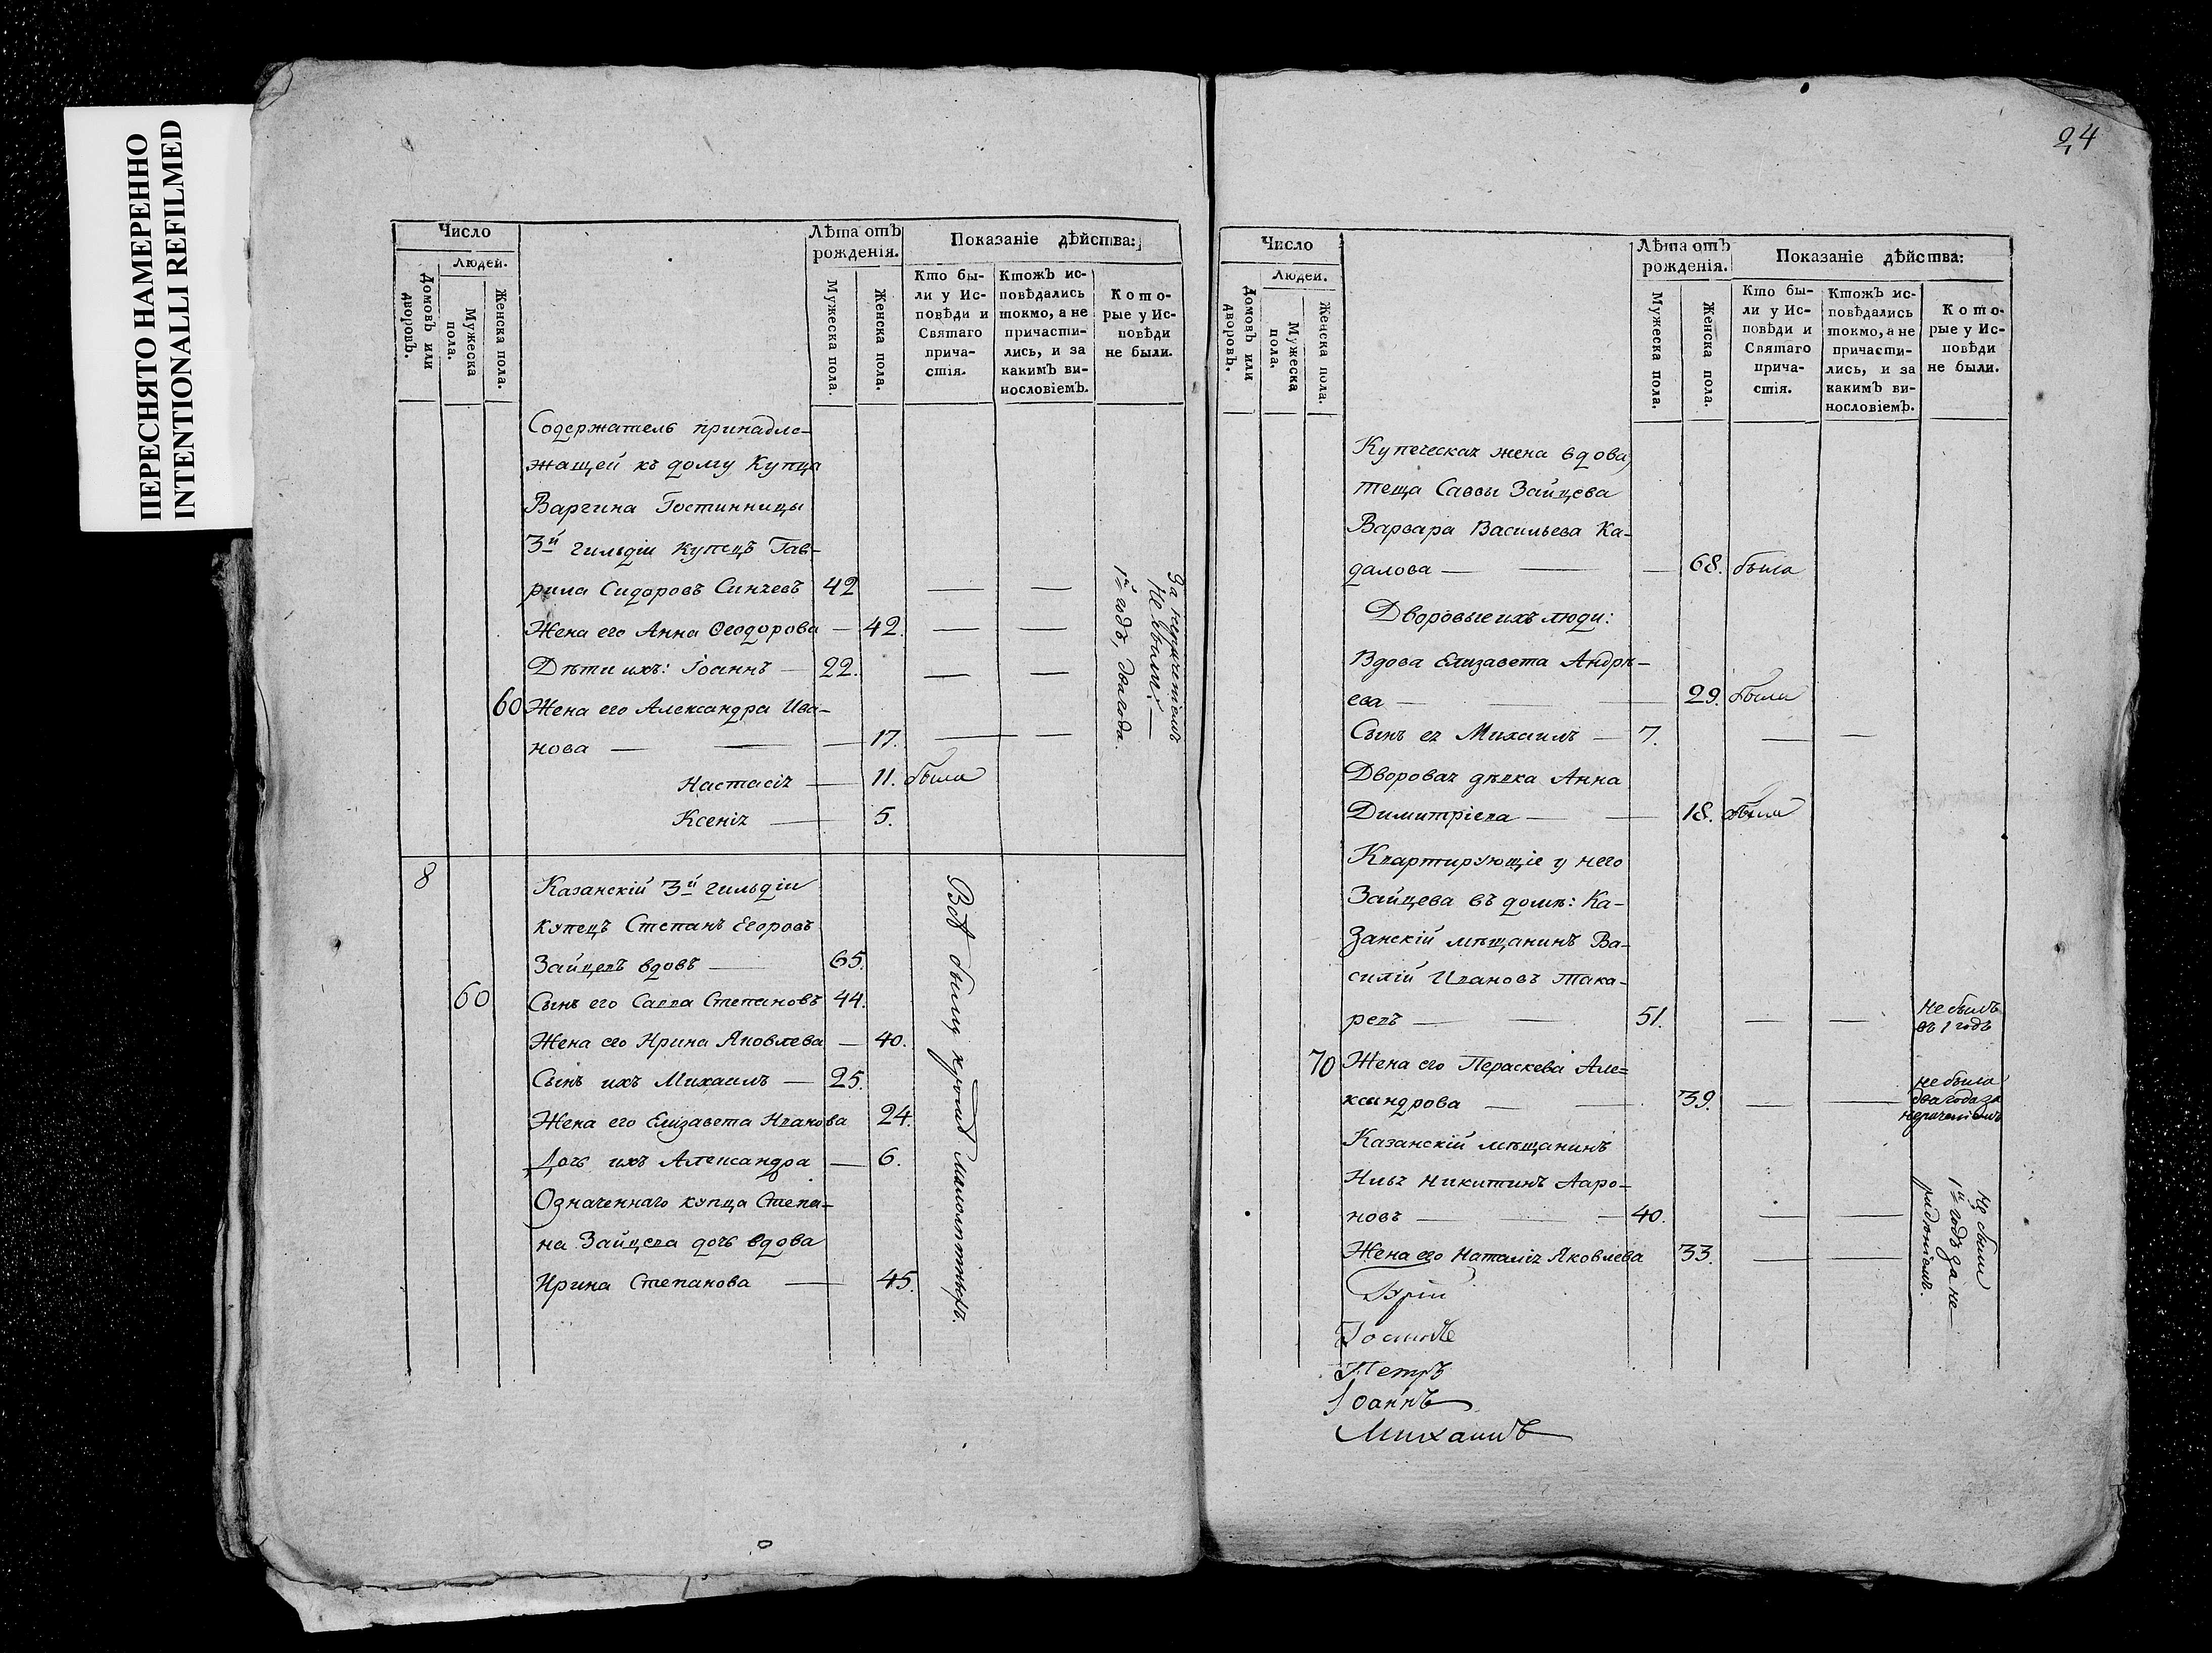 ПЕРЕСНЯТО НАМЕРЕННО
INTENTIONALLI REFILMED
Число
Людей.
Домовъ или дворовъ.
Мужеска пола.
Женска пола.
Лѣта отъ рожденія.
Мужеска пола.
Женска пола.
Показаніе дѣйства:
Кто бы-
ли у Ис-
повѣди и
Святаго
прича-
стія.
Ктожъ ис-
повѣдались
токмо, а не
причасти-
лись, и за
какимъ ви-
нословіемъ.
Кото-
рые у Ис-
повѣди
не были.
Содержатель принадле-
жащей къ дому Купца
Варгина Гостинницы
3й гильдіи купецъ Гав-
рила Сидоровъ Синчевъ 42
Жена его Анна Ѳеодорова — 42.
Дѣти ихъ: Іоаннъ — 22.
60 Жена его Александра Ива-
нова — 17.
Настасія — 11. была
Ксенія — 5.
За нераченіемъ
Не были:
1й годъ, два года.
8 Казанскій 3й гильдіи
купецъ Степанъ Егоровъ
Зайцевъ вдовъ — 65.
60 Сынъ его Савва Степановъ 44.
Жена его Ирина Яковлева — 40.
Сынъ ихъ Михаилъ — 25.
Жена его Елизавета Иванова 24.
Дочь ихъ Александра — 6.
Означеннаго купца Степа-
на Зайцева дочь вдова
Ирина Степанова — 45.
Всѣ были, кромѣ малолѣтныхъ.
24
Число
Людей.
Домовъ или дворовъ.
Мужеска пола.
Женска пола.
Лѣта отъ рожденія.
Мужеска пола.
Женска пола.
Показаніе дѣйства:
Кто бы-
ли у Ис-
повѣди и
Святаго
прича-
стія.
Ктожъ ис-
повѣдались
токмо, а не
причасти-
лись, и за
какимъ ви-
нословіемъ.
Кото-
рые у Ис-
повѣди
не были.
Купеческая жена вдова,
теща Саввы Зайцева
Варвара Васильева Ка-
далова — 68. была
Дворовые ихъ люди:
Вдова Елизавета Андрѣ-
ева — 29. была
Сынъ ея Михаилъ — 7.
Дворовая дѣвка Анна
Димитріева — 18. была
Квартирующіе у него
Зайцева въ домѣ: Ка-
занскій мѣщанинъ Ва-
силій Ивановъ Тока-
ревъ — 51.
Не былъ
въ 1 годъ
70 Жена его Параскева Але=
ксандрова — 39.
не была
два года за
нераченіемъ
Казанскій мѣщанинъ
Илья Никитинъ Ааро-
новъ — 40.
Жена его Наталія Яковлева 33.
Не были
1й годъ за не-
радѣніемъ.
Петръ
Іоаннъ
Михаилъ